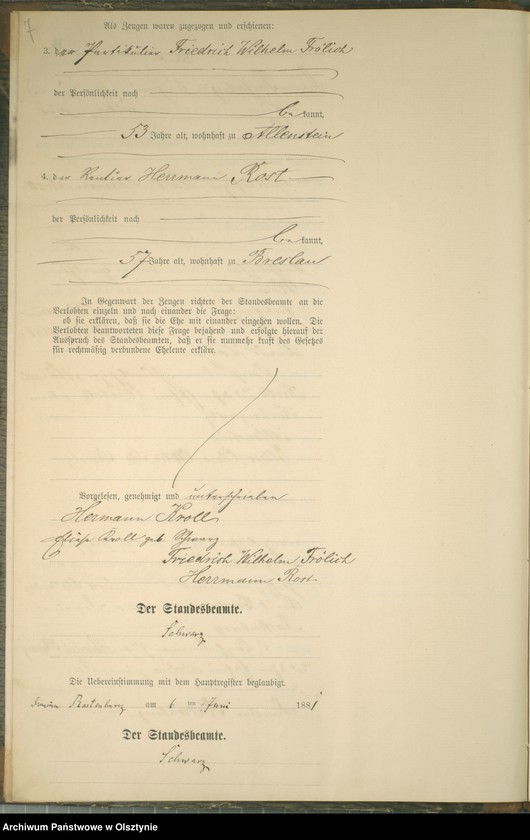 7
Als Zeugen waren zugezogen und erschienen:
3. der Partikulier Friedrich Wilhelm Frölich
der Persönlichkeit nach
bekannt,
53 Jahre alt, wohnhaft zu Allenstein
4. der Rentier Herrmann Rost
der Persönlichkeit nach
bekannt,
57 Jahre alt, wohnhaft zu Breslau
In Gegenwart der Zeugen richtete der Standesbeamte an die
Verlobten einzeln und nach einander die Frage:
ob sie erklären, daß sie die Ehe mit einander eingehen wollen. Die
Verlobten beantworteten diese Frage bejahend und erfolgte hierauf der
Ausspruch des Standesbeamten, daß er sie nunmehr kraft des Gesetzes
für rechtmäßig verbundene Eheleute erkläre.
Vorgelesen, genehmigt und unterschrieben
Hermann Kroll
Kroll geb. Schwarz
Friedrich Wilhelm Frölich
Herrmann Rost
Der Standesbeamte.
Schwarz
Die Uebereinstimmung mit dem Hauptregister beglaubigt.
am 6 ten Juni 1881
Der Standesbeamte.
Schwarz
Archiwum Państwowe w Olsztynie